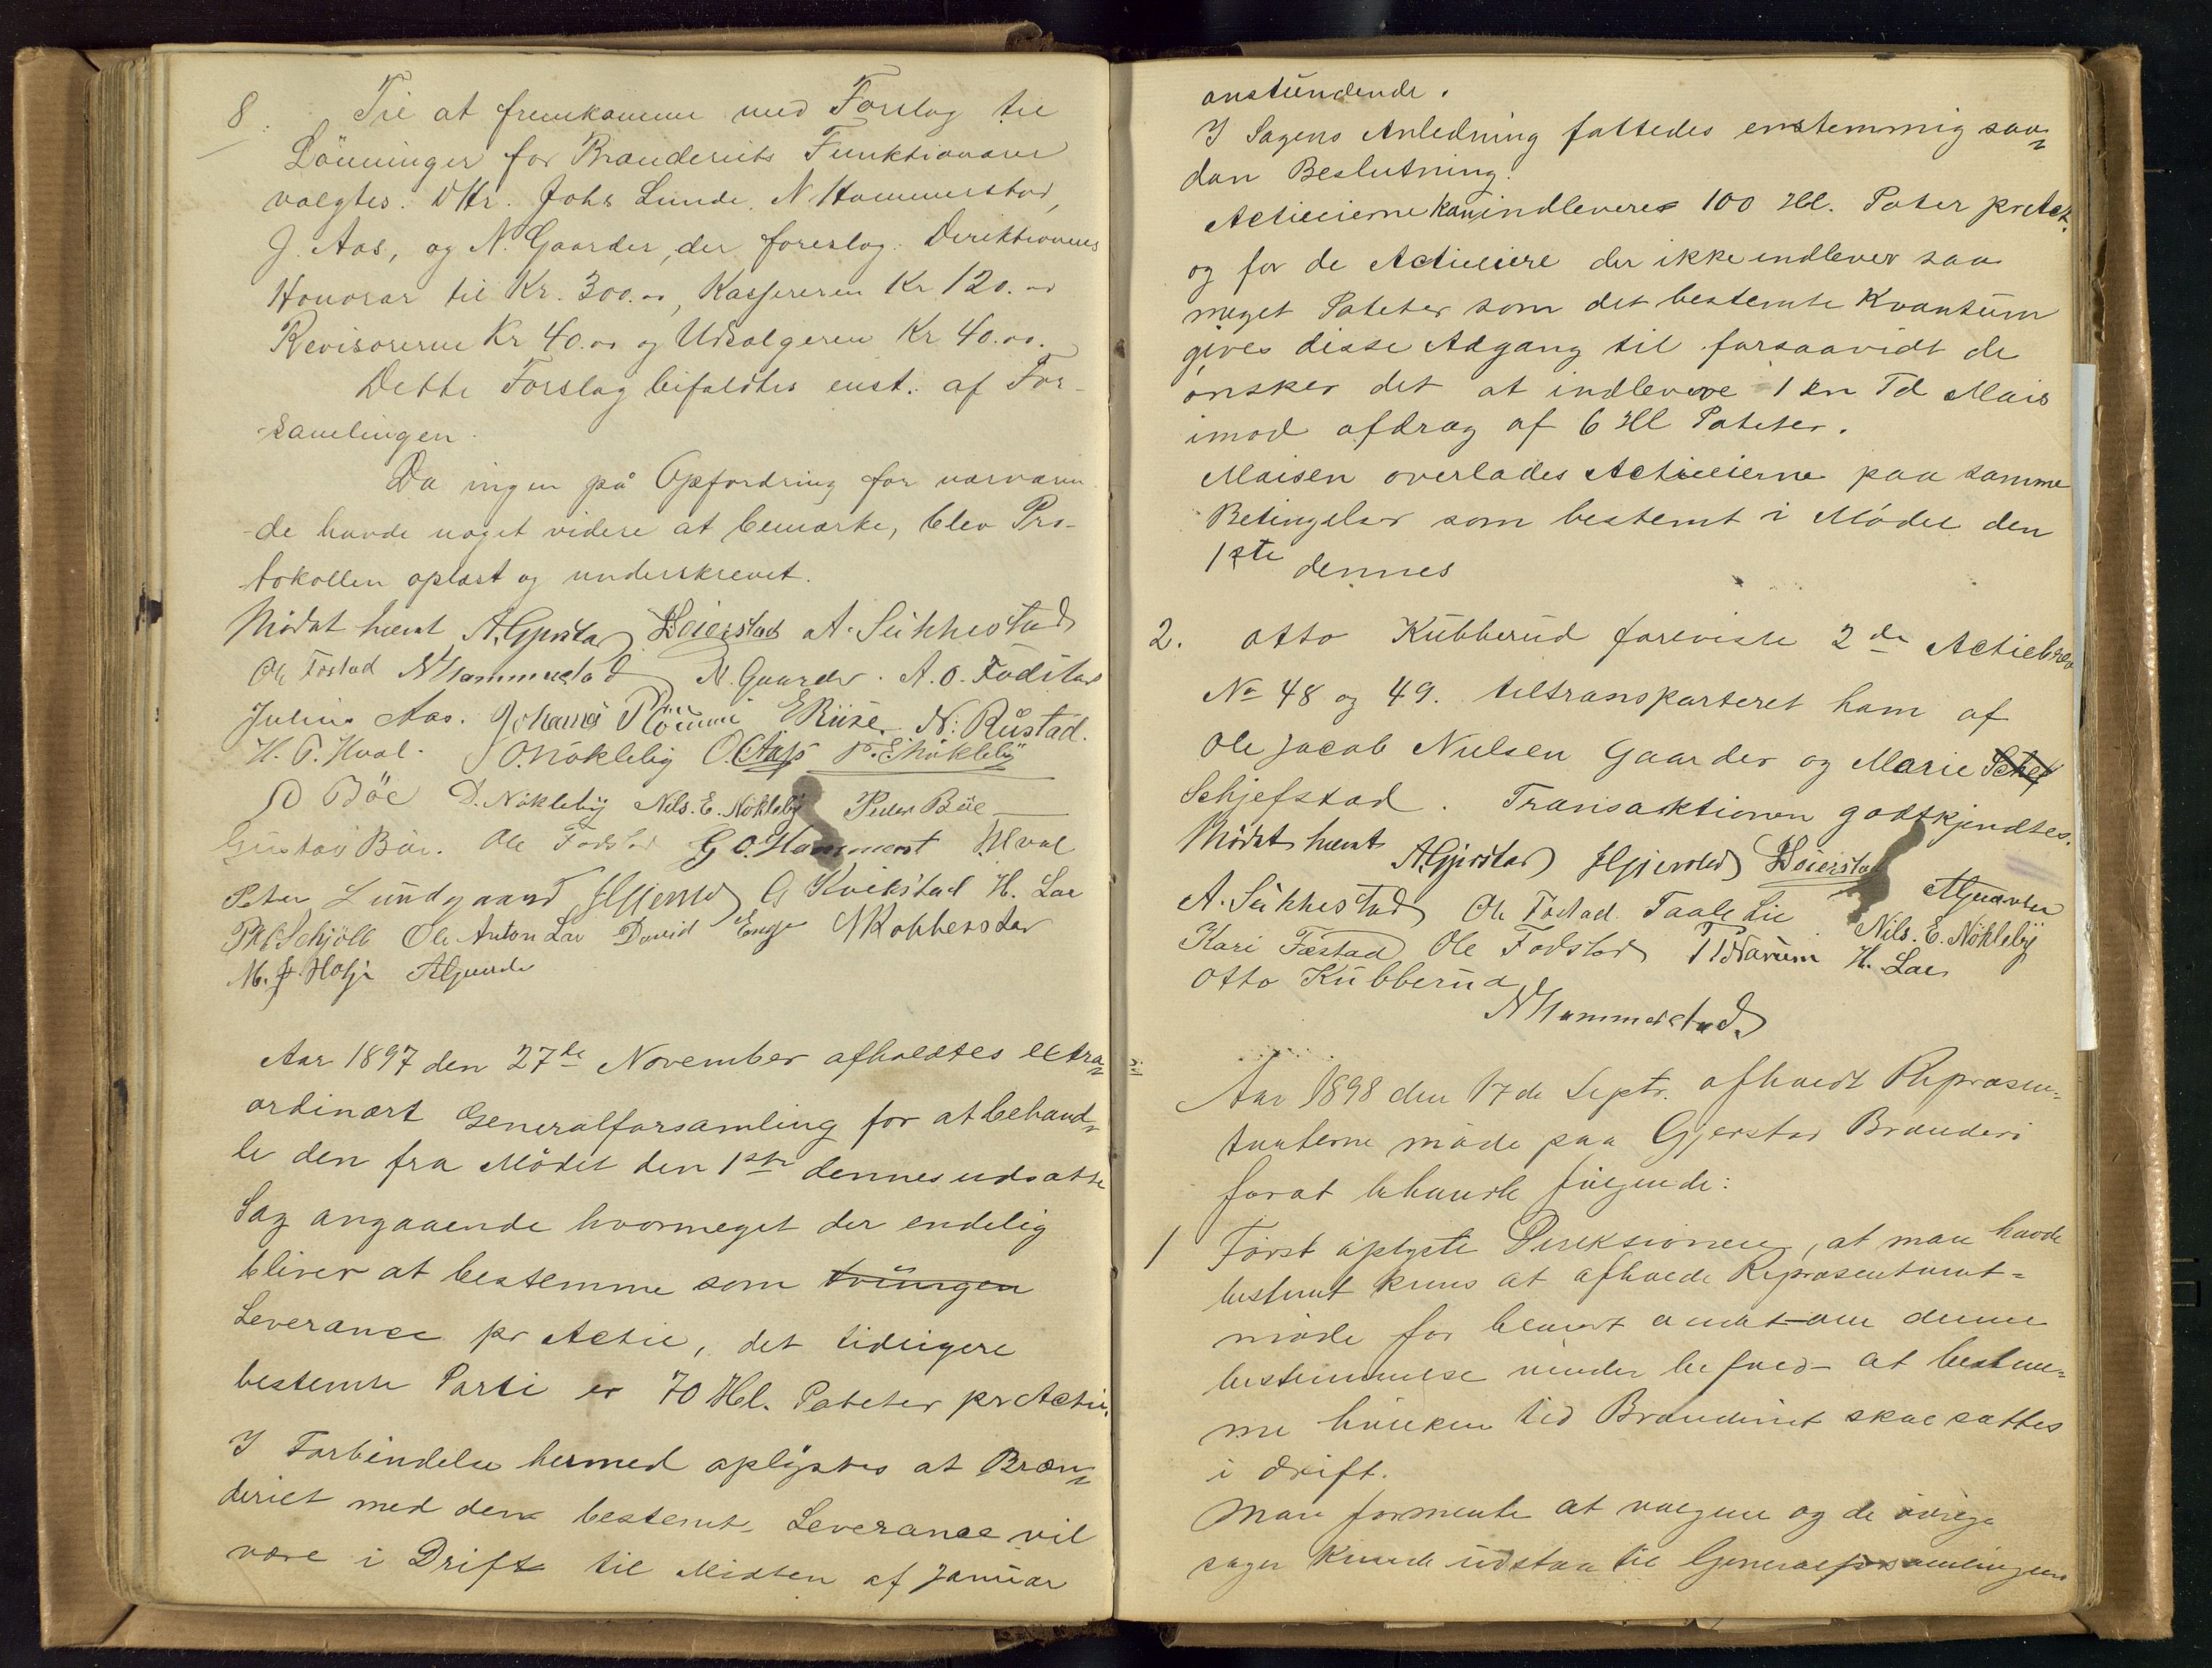 8. Til at fremkomme med Forslag til
Lönninger for Brænderiets Funktionærer
valgtes. DHr. Johs Lunde, N Hammerstad,
J. Aas, og N. Gaarder, der foreslog: Direktionens
Honorar til Kr. 300.00, Kassereren Kr 120.00
Revisorerne Kr 40.00 og Udsælgeren Kr 40.00.
Dette Forslag bifaldtes enst. af For-
samlingen.
Da ingen på Opfordring for nærværen
-de havde noget videre at bemærke, blev Pro-
tokollen oplæst og underskrevet.
Mödet hævet A. Gjerstad Heierstad A. Sukkestad
Ole Fostad NHammerstad N. Gaarder. A. O. Fodstad
Julius Aas. Johannes E Riise N. Rustad.
H. P. Hval. O. Nökleby O. Aas P. E. Nökleby
D Böe D. Nökleby Nils. E. Nökleby Peder Böe
Gustav Böe. Ole Fodstad G O. Hammerst Hval
Peter Lundgaard HGjerstad G Kvikstad H. Lae
Schjöll Ole Anton Lae David Enge N Kobberstad
M. Hofje AGaarder
Aar 1897 den 27de November afholdtes extra=
ordinært Generalforsamling for at behand=
le den fra Mödet den 1ste dennes udsatte
Sag angaaende hvormeget der endelig
bliver at bestemme som tvungen
Leverance pr Actie, det tidligere
bestemte Parti er 70 Hl. Poteter pr Actie.
I Forbindelse hermed oplystes at Bræn=
deriet med den bestemt Leverance vil
være i Drift til Midten af Januar
anstundende.
I Sagens Anledning fattedes enstemmig saa=
dan Beslutning.
Actieeierne kan indlevere 100 Hl. Poter pr Act.
og for de Actieeiere der ikke indlever saa
meget Poteter som det bestemte Kvantum
gives disse Adgang til forsaavidt de
önsker det at indlevere 1 en Td Mais
imod afdrag af 6 Hl Poteter.
Maisen overlades Actieeierne paa samme
Betingelser som bestemt i Mödet den
1ste dennes
2. Otto Kubberud foreviste 2de Actiebrev
No 48 og 49. tiltransporteret ham af
Ole Jacob Nielsen Gaarder og Marie Schef
Schjefstad. Transaktionen godtkjendtes.
Mödet hævet A. Gjerstad HGjerstad Heierstad AGaarder
A. Sukkestad Ole Fostad Taale Lie Nils. E. Nökleby
Kari Fæstad Ole Fodstad Narum H. Lae
Otto Kubberud
NHammerstad
Aar 1898 den 17de Septr. afholdt Repræsen=
tanterne möde paa Gjerstad Brænderi
forat behandle fölgende:
1 Först oplyste Direksionen, at man havde
bestemt kuns at afholde Repræsentant=
möde for denne
bestemmelse at bestem=
me hvilken tid Brænderiet skal sættes
i drift.
Man formente at valgene og de övrige
sager kunde udstaa til Generalforsamlingen